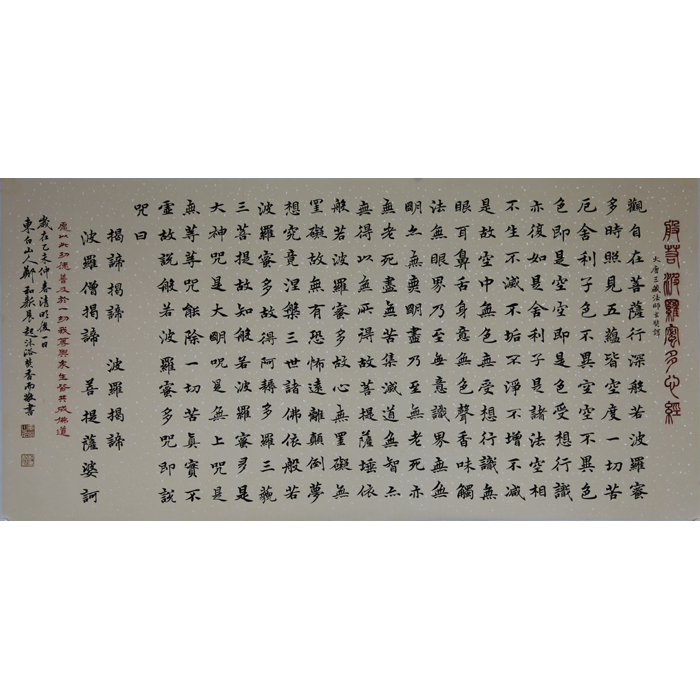 般若波羅蜜多心經
大唐三藏法師玄奘譯
觀自在菩薩行深般若波羅蜜
多時照見五蘊皆空度一切苦
厄舍利子色不異空空不異色
色即是空空即是色受想行識
亦復如是舍利子是諸法空相
不生不滅不垢不淨不增不減
是故空中無色無受想行識無
眼耳鼻舌身意無色聲香味觸
法無眼界乃至無意識界無無
明亦無無明盡乃至無老死亦
無老死盡無苦集滅道無智亦
無得以無所得故菩提薩埵依
般若波羅蜜多故心無罣礙無
罣礙故無有恐怖遠離顛倒夢
想究竟涅槃三世諸佛依般若
波羅蜜多故得阿耨多羅三藐
三菩提故知般若波羅蜜多是
大神咒是大明咒是無上咒是
無等等咒能除一切苦真實不
虛故說般若波羅蜜多咒即說
咒曰
揭諦揭諦 波羅揭諦
波羅僧揭諦 菩提薩婆訶
願以此功德普及於一切我等與眾生皆共成佛道
歲在乙未仲春清明後一日
東白山人晨起沐浴焚香而敬書